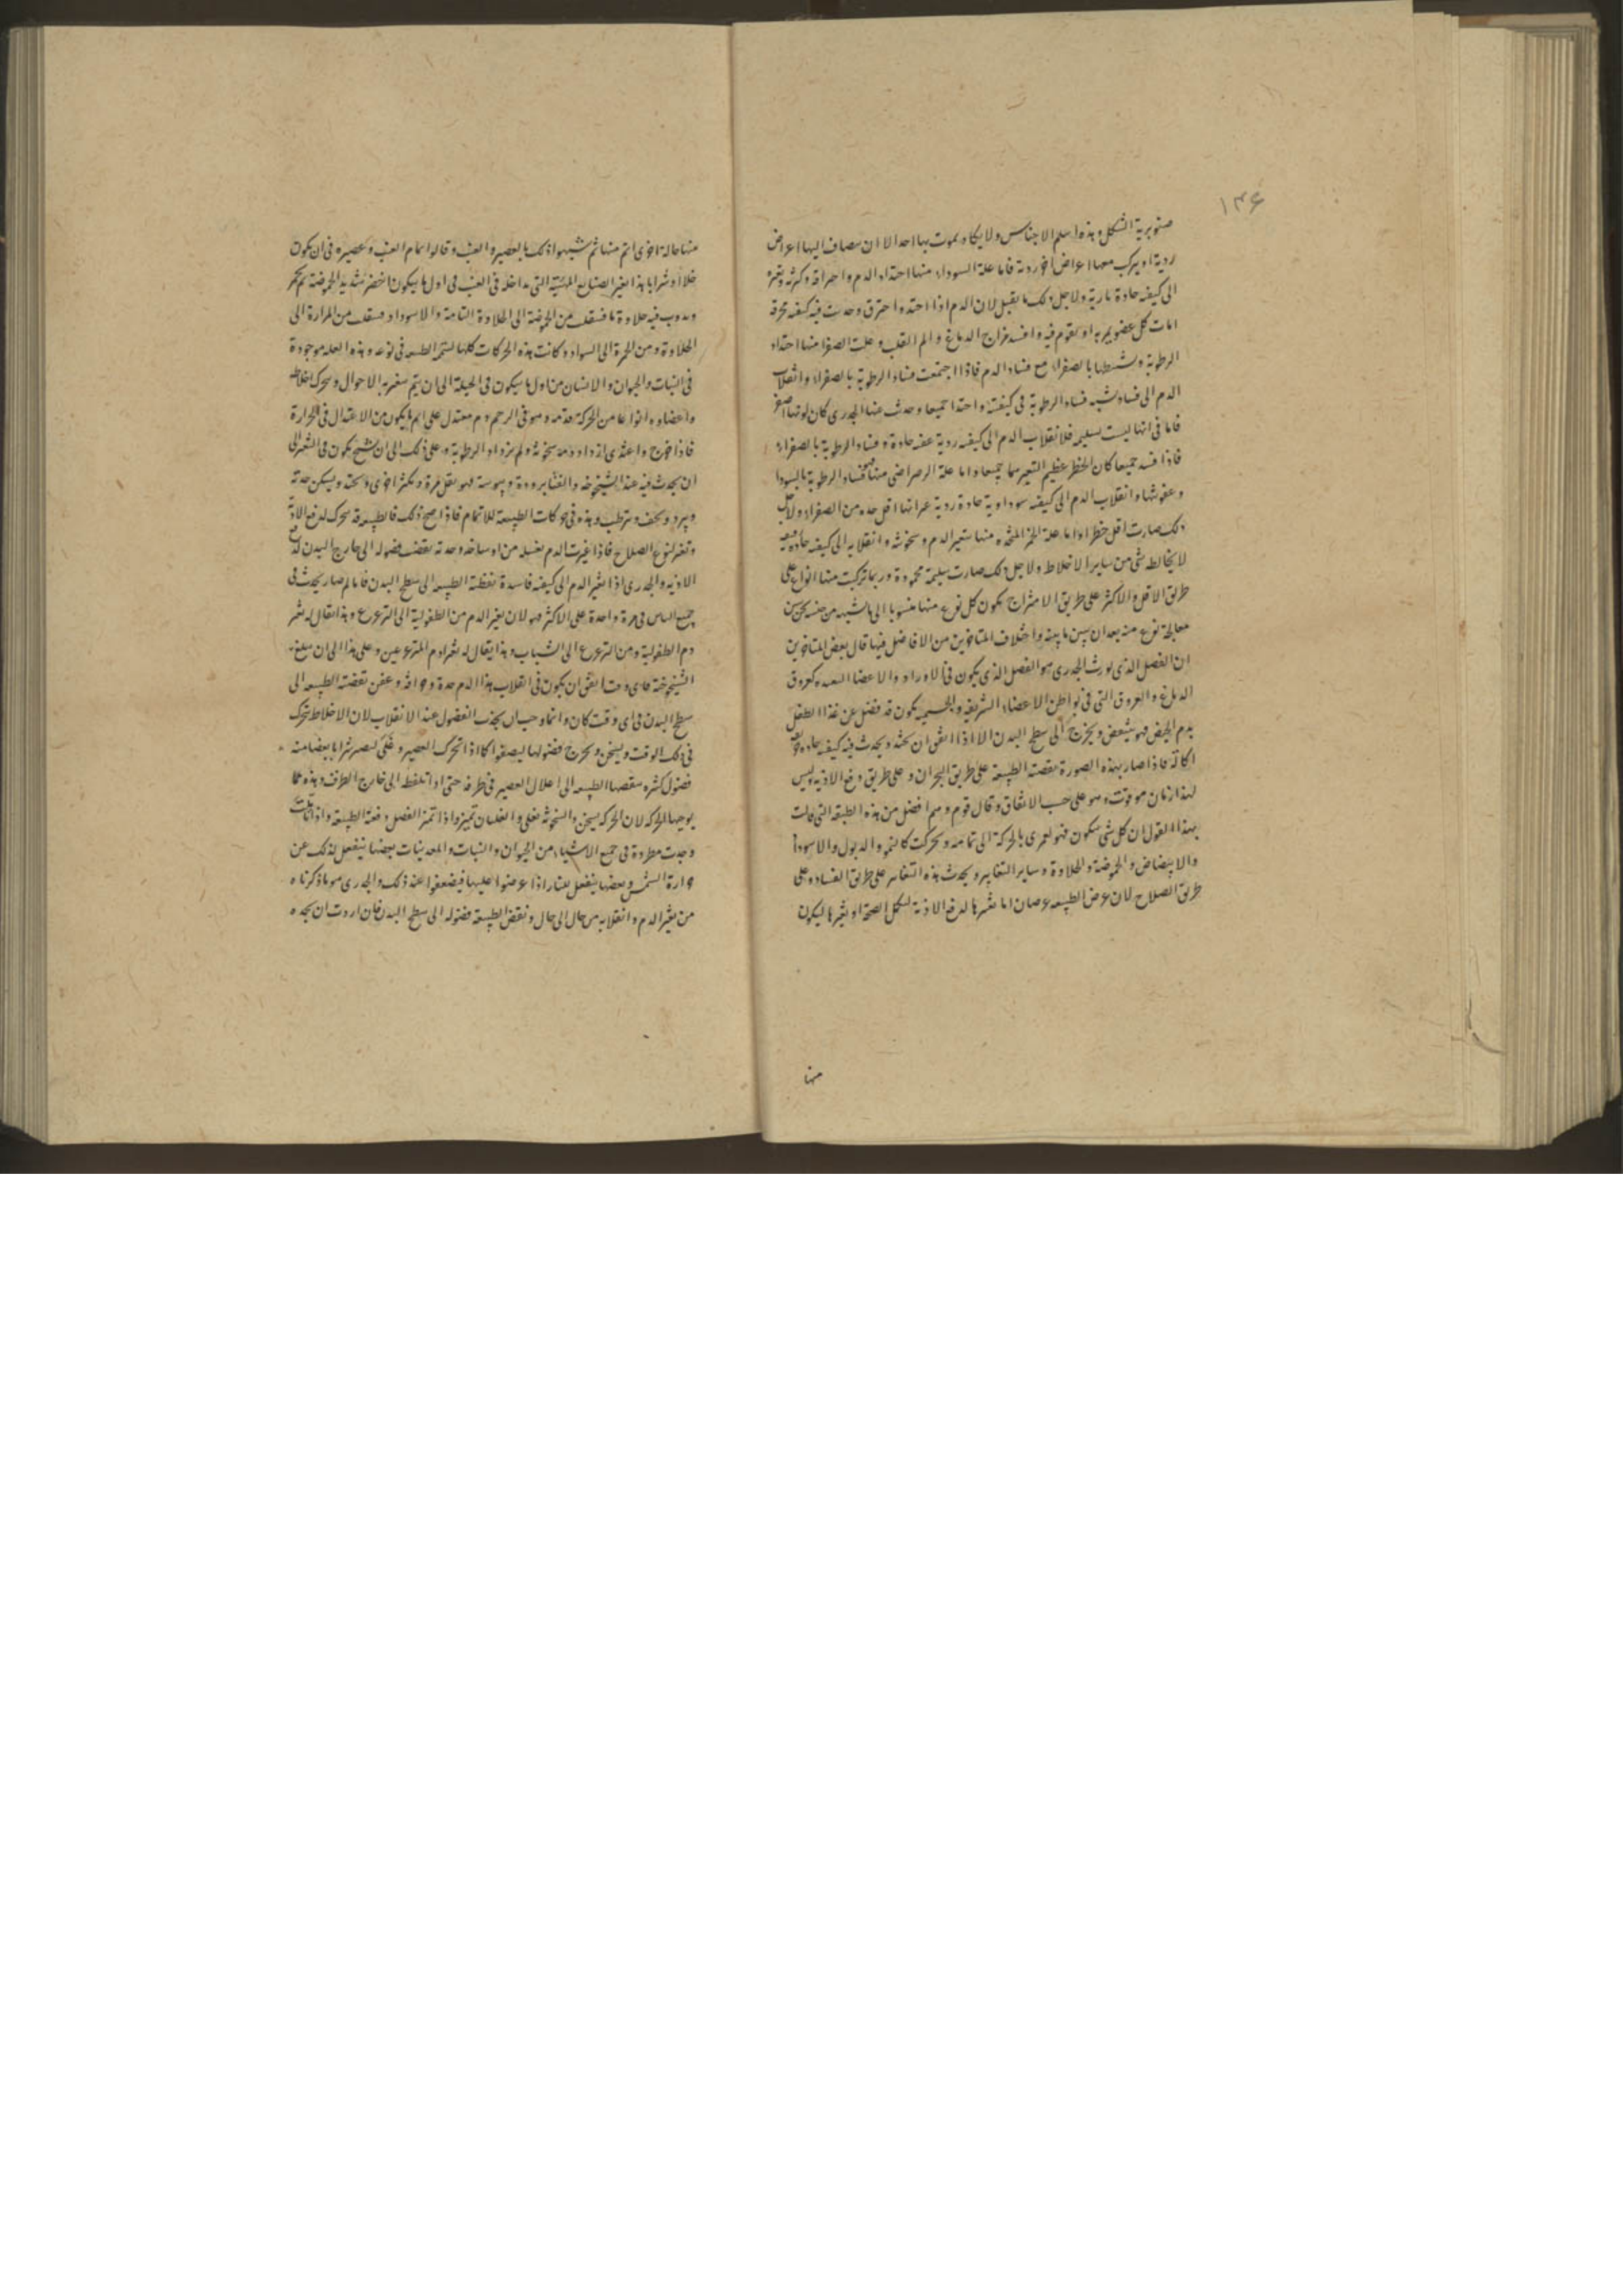 ۱۳۶
صنوبرية الشكل وهذه اسلم الاجناس ولا يكاد يموت بها احد الا ان يضاف اليها اعراض
ردية او يركب معها اعراض اخر ردية فاما علة السوداء منها احتداد الدم واحراقه وكثرته وتغيره
الى كيفية حادة نارية ولاجل ذلك ما يقتل لان الدم اذا احتد واحترق وحدثت فيه كيفية محرقة
امات كل عضو يمر به او يقوم فيه وافسد مزاج الدماغ والم القلب وعلة الصفرا منها احتداد
الرطوبة وتشيطها بالصفراء مع فساد الدم فاذا اجتمعت فساد الرطوبة بالصفراء وانقلاب
الدم الى فساد شبيه فساد الرطوبة في كيفيته واحتدا جميعا وحدث عنها الجدري كان لونها اصفر
فاما في انها ليست بسليمة فلانقلاب الدم الى كيفية ردية عفنة حادة وفساد الرطوبة بالصفراء
فاذا فسد جميعا كان الخطر عظيم جميعا واما علة الرصاصي منها فساد الرطوبة بالسودا
وعفونتها وانقلاب الدم الى كيفية سوداوية حادة ردية غير انها اقل حدة من الصفراء ولاجل
ذلك صارت اقل خطرا واما علة منها تغير الدم وسخونته وانقلابه الى كيفية حادة
لا يخالطه شئ من ساير الاخلاط ولاجل ذلك صارت سليمة محمودة وربما تركبت منها انواع على
طريق الاقل والاكثر على طريق الامتزاج يكون كل نوع منها منسوبا الى ما شبهه من جنسه نحن نبين
معالجة نوع منه بعد ان نبين ماهيته واختلاف المتاخرين من الافاضل فيها قال بعض المتاخرين
ان الفضل الذي يورث الجدري هو الفضل الذي يكون في الاوراد والاعضا البعيدة كعروق
الدماغ والعروق التي في بواطن الاعضاء الشريفة والجسمية يكون قد فضل عن غذا الطفل
بدم الحيض فهو يتعفن ويخرج الى سطح البدن الا اذا اتفق ان يحتد ويحدث فيه كيفية حادة
اكالة فاذا صار بهذه الصورة نفضته الطبيعة على طريق البحران وعلى طريق دفع الاذية وليس
لهذا زمان موقوت وهو على حسب الاتفاق وقال قوم وهم افضل من هذه الطبقة التي قالت
بهذا القول ان كل شئ يتكون فهو لعمري بالحركة الى تمامه وتحركت كالنمو والذبول والاسودا
والابيضاض والحموضة والحلاوة وساير التغاير ويحدث هذه التغاير على طريق الفساد وعلى
طريق الصلاح لان غرض الطبيعة غرضان اما تغيرها لدفع الاذية لتكمل الصحة او تغيرها ليكون
منها
منها حالة اخرى اتم منها ثم شبهوا ذلك بالعصير والعنب وقالوا تمام العنب وعصيره في ان يكون
خلا او شرابا بهذا بغير الصناعة المهنية التي مداخلة في العنب في اول ما يكون اخضر شديد الحموضة ثم يحمر
ويدوب فيه حلاوة ما فينتقل من الحموضة الى الحلاوة التامة والاسوداد فينتقل من المرارة الى
الحلاوة ومن الحمرة الى السواد وكانت هذه الحركات كلها لتتم الطبيعة في نوعه وهذه العلة موجودة
في النبات والحيوان والانسان من اول ما يكون في الجبلة الى ان يتم بتغيره الاحوال وتحرك اخلاطه
واعضاوه انواعا من الحركة فدمه وهو في الرحم دم معتدل على اتم ما يكون من الاعتدال في الحرارة
فاذا خرج واغتذى ازداد دمه سخونة ولم يزداد الرطوبة وعلى ذلك الى ان يشيخ يكون في التغير الى
ان يحدث فيه عند الشيخوخة والفنا برودة ويبوسة فهو يقل مرة ويكثر اخرى ويحتد ويسكن حدته
ويبرد ويجف ويترطب وهذه في حركات الطبيعة للاتمام فاذا صح ذلك فالطبيعة قد تتحرك لدفع الاذية
وتغير لنوع الصلاح فاذا غيرت الدم لغسله من اوساخه وحدته نفضت فضوله الى خارج البدن لدفع
الاذية والجدري اذا تغير الدم الى كيفية فاسدة نفضته الطبيعة الى سطح البدن فاما لم صار يحدث في
جميع الناس في مرة واحدة على الاكثر فهو لان تغير الدم من الطفولية الى الترعرع وهذا يقال له تغير
دم الطفولية ومن الترعرع الى الشباب وهذا يقال له تغير دم المترعرعين وعلى هذا الى ان يبلغ
الشيخوخة فاي وقت اتفق ان يكون في انقلاب هذا الدم حدة وحرافة وعفن نفضته الطبيعة الى
سطح البدن في اي وقت كان وانما وجب ان يجذب الفضول عند الانقلاب لان الاخلاط تتحرك
في ذلك الوقت ويسخن ويخرج فضولها ليصفوا كما اذا تحرك العصير وغلى ليصير شرابا بيضا منه
فضول كثيرة ينفضها الطبيعة الى اعلا العصير في ظرفه حتى اذا تلفظه الى خارج الظرف وهذه مما
يوجبها الحركة لان الحركة يسخن والسخونة تغلي والغليان تميز واذا تميز الفضل دفعته الطبيعة واذا تاملت
وجدت مطردة في جميع الاشياء من الحيوان والنبات والمعدنيات بعضها ينفعل لذلك عن
حرارة الشمس وبعضها ينفعل بنار اذا عرضوا عليها فيضعفوا عند ذلك والجدري هو ما ذكرناه
من تغير الدم وانقلابه من حال الى حال ونفض الطبيعة فضوله الى سطح البدن فان اردت ان تجده